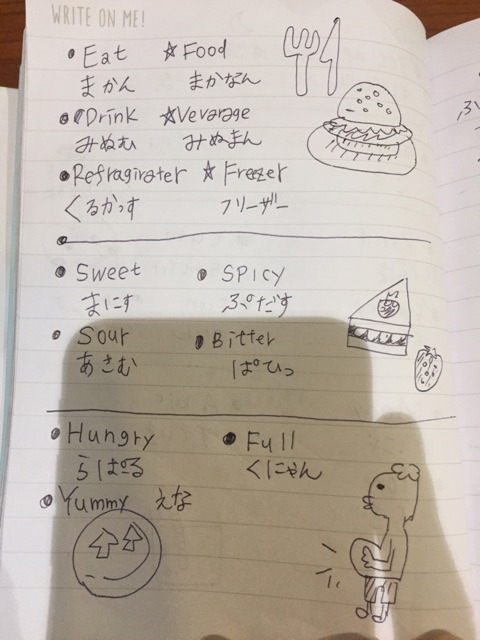 WRITE ON ME!
Eat ☆Food
まかん まかなん
Drink ☆Veverage
みぬむ みぬまん
Refragirater ☆ Freezer
くるかっす フリーザー
Sweet SPICY
まにす ぷだす
Sour Bitter
あさむ ぱひっ
Hungry Full
らぱる くにゃん
Yummy えな